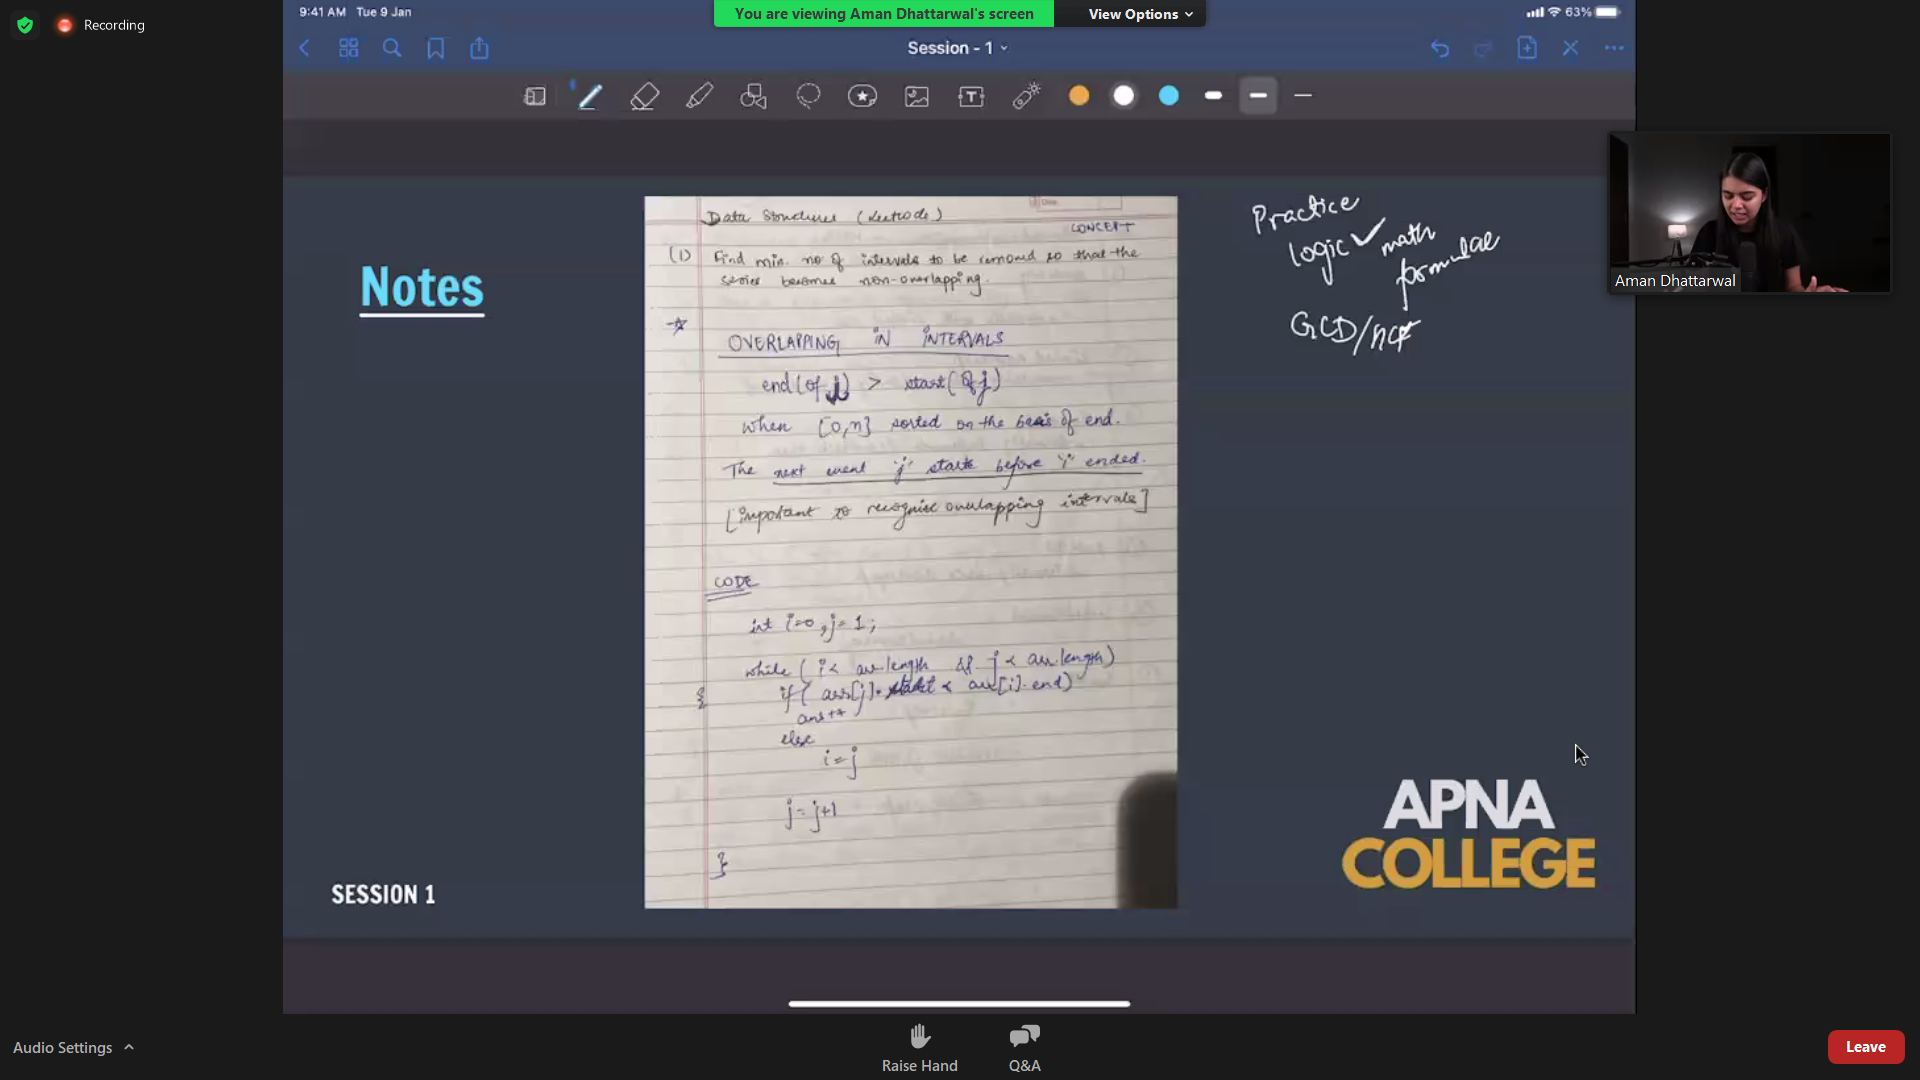 Recording
9:41 AM Tue 9 Jan
You are viewing Aman Dhattarwal's screen
View Options
63%
Session - 1
T
Notes
Data Structures (Leetcode)
CONCEPT
(1) Find min. no of intervals to be removed so that the
series becomes non-overlapping.
OVERLAPPING IN INTERVALS
end(of i) > start(of j)
when [0,n] sorted on the basis of end.
The next event 'j' starts before 'i' ended.
[important to recognise overlapping intervals]
CODE
int i=0, j=1;
while ( i < arr.length && j < arr.length)
{ if( arr[j].start < arr[i].end)
ans++
else
i=j
j=j+1
}
Practice
logic ✓ math
formulae
GCD/HCF
Aman Dhattarwal
APNA
COLLEGE
SESSION 1
Audio Settings
Raise Hand
Q&A
Leave